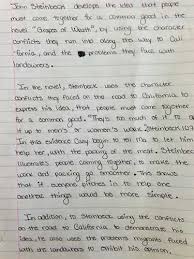 John Steinbeck develops the idea that people
must come together for a common good in the
novel "Grapes of Wrath", by using the character
conflicts they run into along the way to Cali
fornia, and the problems they face with
landowners.
In the novel, Steinbeck uses the character
conflicts they faced on the road to California to
express his idea, that people must come together
for a common good. "They's too much of it to
it up to men's or women's work. (Steinbeck 107
In this evidence Casy begin to tell Ma to let him
help with the packing of the meat. Steinbeck
illustrates people coming together, to make the
work and packing go smoother. This shows
that if everyone pitches in to help one
another things would be more simple.
In addition, to Steinbeck using the conflicts
on the road to California to demonstrate his
idea, he also uses the problems migrants faced
with the landowners to exhibit his opinion.